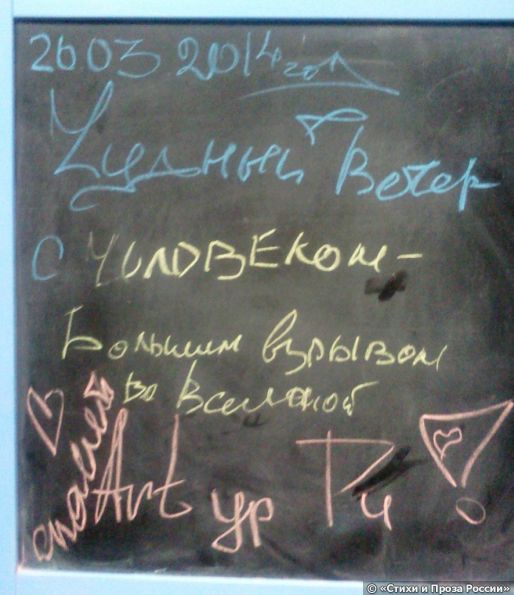 26 03 2014 год
Чудный Вечер
с Чиловеком-
Большим взрывом
во Вселеной
Art ур Ри !
© «Стихи и Проза России»